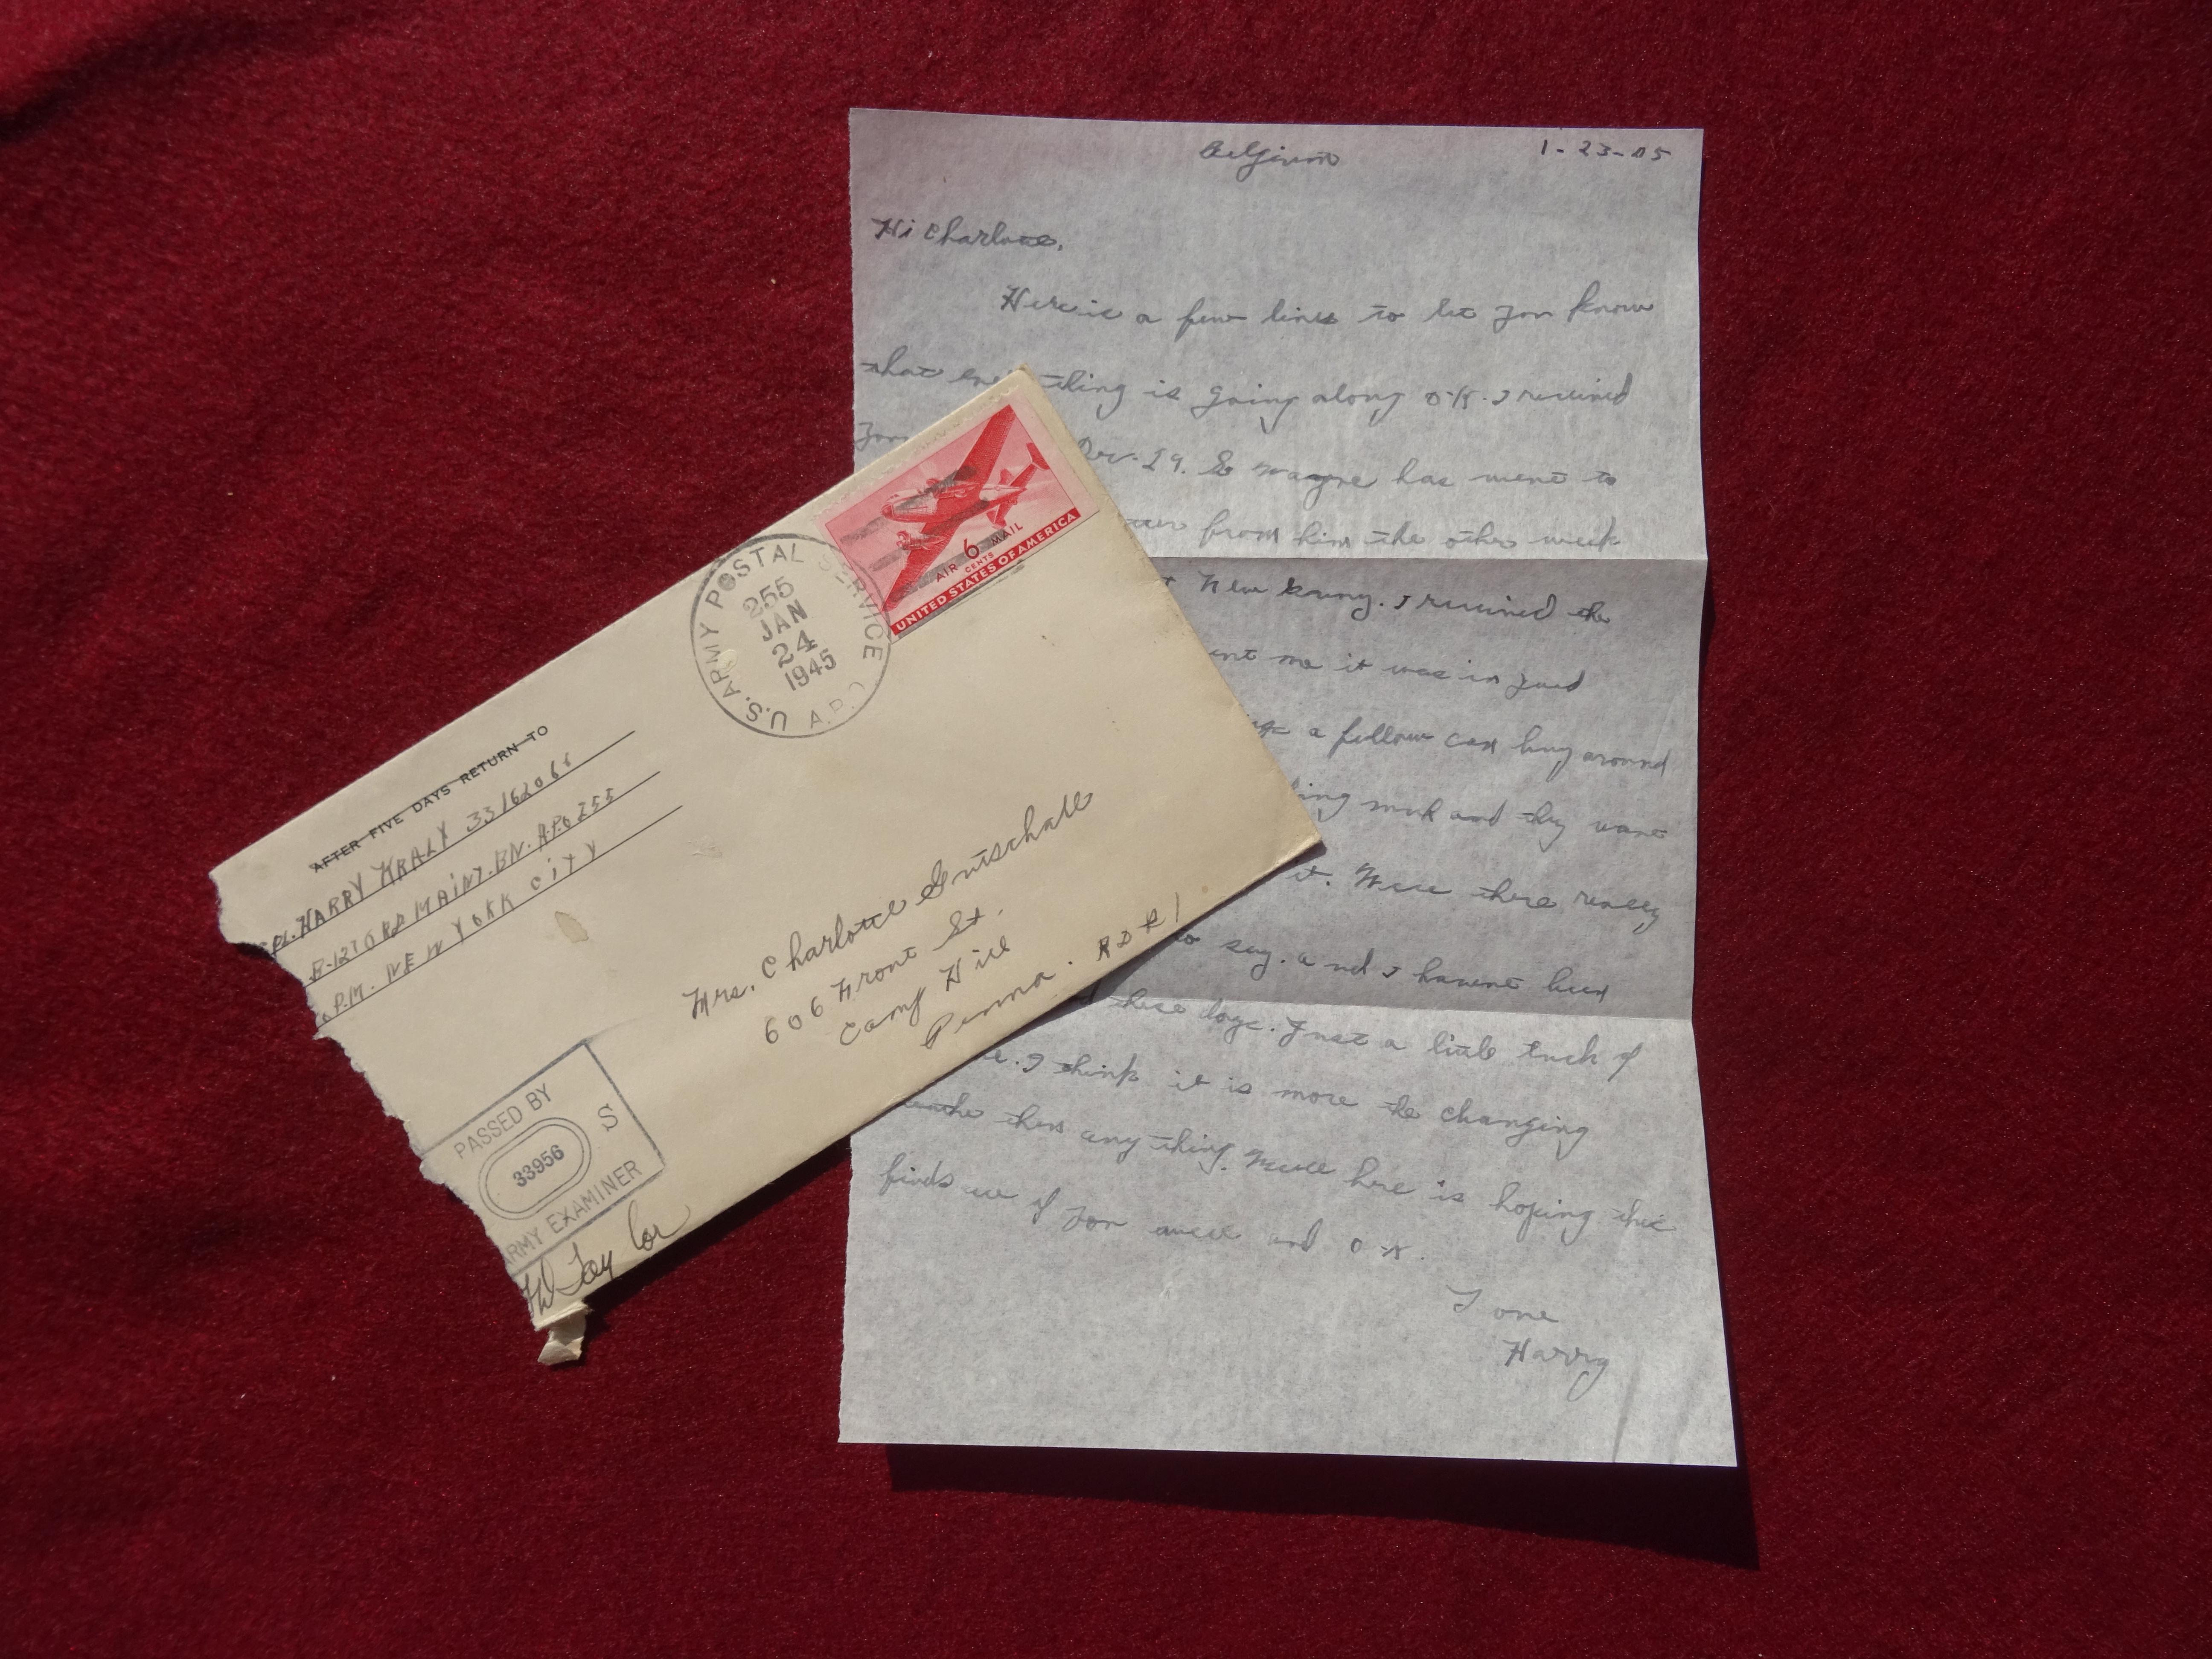 AFTER FIVE DAYS RETURN TO
HARRY KRALY 33162066
B-127 ORD MAINT. BN. A.P.O 255
P.M. NEW YORK CITY
U.S. ARMY POSTAL SERVICE
A.P.O.
255
JAN
24
1945
6
CENTS
AIR MAIL
UNITED STATES OF AMERICA
Mrs. Charlotte Gutschall
606 Front St.
Camp Hill
Penna. RD#1
PASSED BY
S
33956
ARMY EXAMINER
Belgium 1-23-45
Hi Charlotte,
Here is a few lines to let you know
that everything is going along O.K. I received
Dec. 29. So Wayne has went to
from him the other week
New Guiney. I received the
me it was in good
a fellow can buy around
and they want
it. Were there really
to say. and I havent been
these days. Just a little touch of
I think it is more the changing
then any thing. Well here is hoping this
finds all of you well and O.K.
Love
Harry